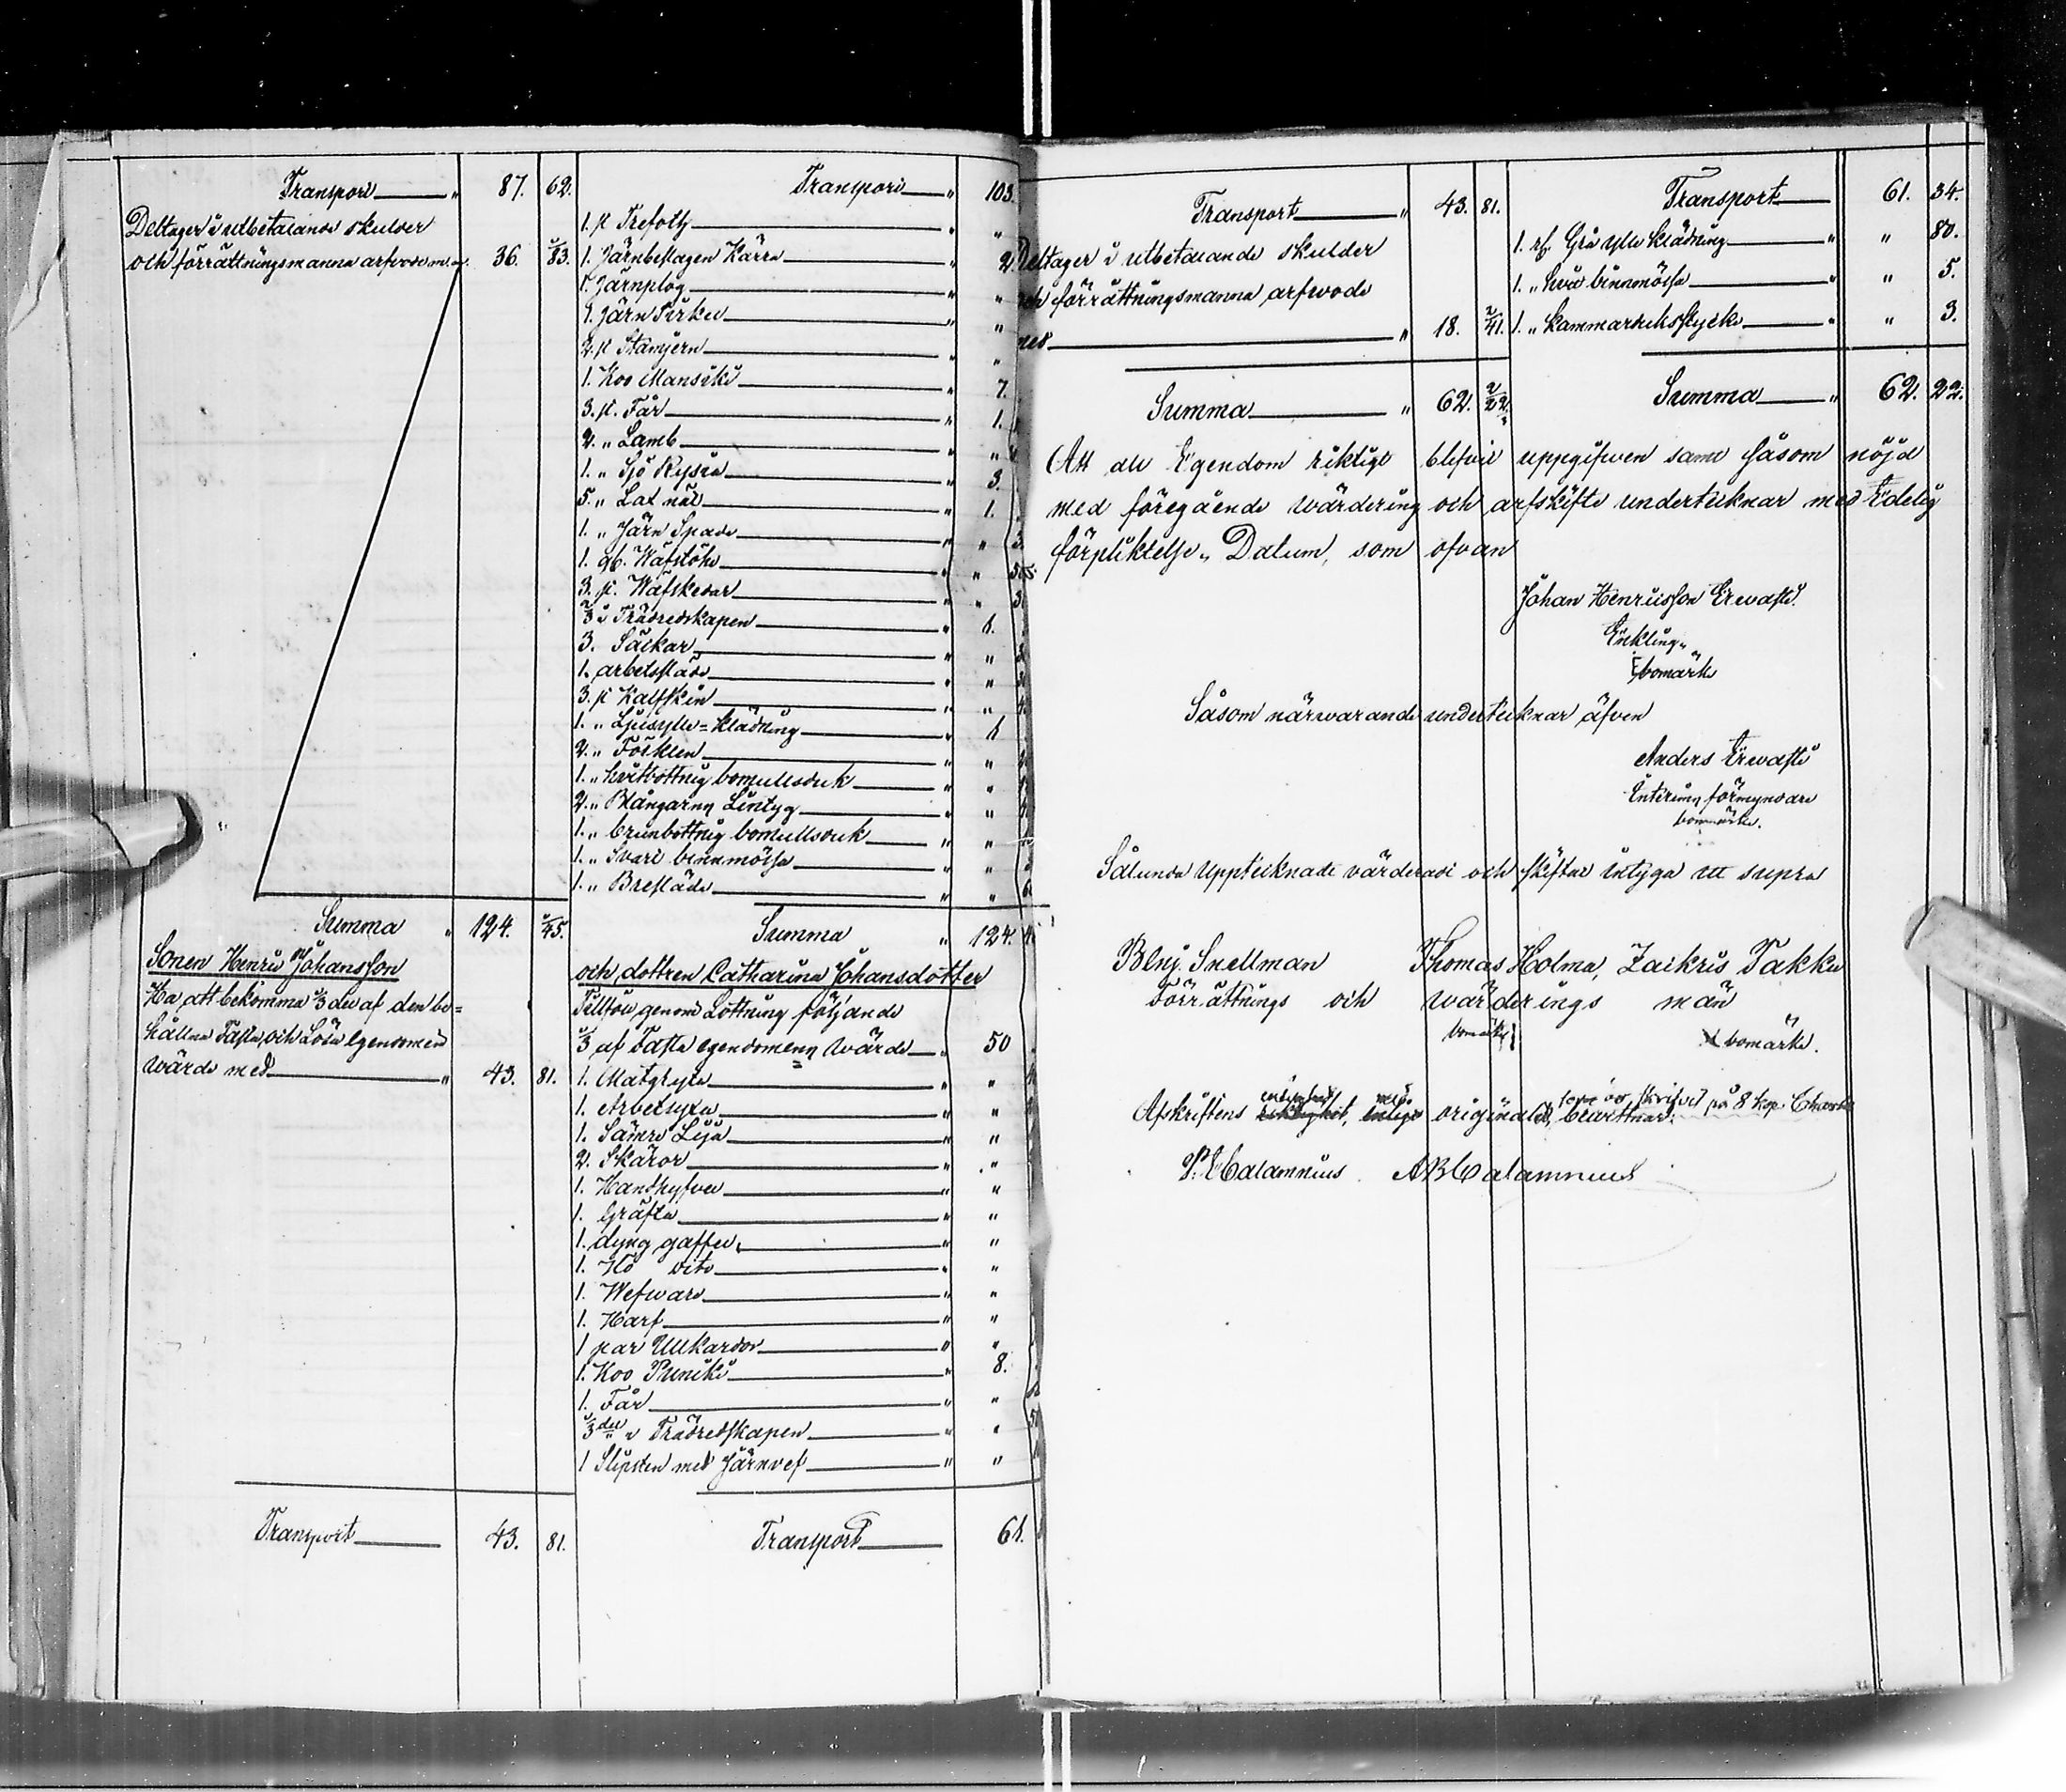 Transport " 87. 62.
Deltager i utbetalande skulder
och förrättningsmanna arfvode m. " 36. 83.
Summa " 124. 45.
Sonen Henric Johansson
Ha att bekomma 1/3 del af den be=
hållna Fasta och Lösa Egendomens
wärde med " 43. 81.
Transport 43. 81.
Transport " 103.
1. st Trefoth "
1. Järnbeslagen Kärra " 2.
1. Järnplog "
1. Järn Tirku "
2. st Stämjern "
1. Koo Mansiki " 7.
3. st. Får " 1.
2. " Lamb " "
1. " Sjö Ryssia " 3.
5. " Lax nät " 1.
1. " Järn Spade " "
1. gb. Wäfstöhl " "
3. st. Wäfskedar " "
2/3 i Trädredskapen " 1.
3. Säckar " "
1. arbetssläde " "
3. st Kalfskin " "
1. " Ljusylle=Klädning " 1
2. " Förklen " "
1. " hvitbottnig bomullsduk " "
2. " Blångarns Lintyg " "
1. " brunbottnig bomullsduk " "
1. " Svart binnmössa " "
1. " Bressläde " "
Summa " 124.
och dottren Catharina Johansdotter
Tillföll genom Lottning följande
1/3 af Fasta egendomens Wärde " 50
1. Matgryta " "
1. Arbetsyxa " "
1. Sämre Lija " "
2. Skäror " "
1. Handhyfvel " "
1. Gräfta " "
1. dyng gaffel " "
1. Hö dito " "
1. Wefware " "
1. Harf " "
1 par Ullkardor " "
1. Koo Puniki " 8.
1. Får " "
1/3 del i Trädredskapen " "
1 Slipsten med Järnvef " "
Transport 61.
Transport " 43. 81.
Deltager i utbetalande skulder
och förrättningsmanna arfvode
med " 18. 41.
Summa " 62. 22.
Transport 61. 34.
1. st. Grå ylle Klädning " " 80.
1. " Svart binnmössa " " 5.
1. " Kammarduksstycke " " 3.
Summa " 62. 22.
Att all Egendom riktigt blifvit uppgifwen samt såsom nöjd
med föregående wärdering och arfskifte undertecknar med Edelig
förpliktelse. Datum, som ofvan
Johan Henricsson Erwasti.
Enkling.
bomärke
Såsom närwarande undertecknar äfven
Anders Erwasti
Interims förmyndare
bomärke.
Sålunda Upptecknadt värderadt och skiftat intyga ut supra
Benj. Snellman Thomas Holma, Zackris Takku
Förrättnings och wärderings män
bomärke bomärke.
Afskriftens riktighet, enligt originalet, bevittnar: på 8 kop. Charta
P. Calamnius AB Calamnius